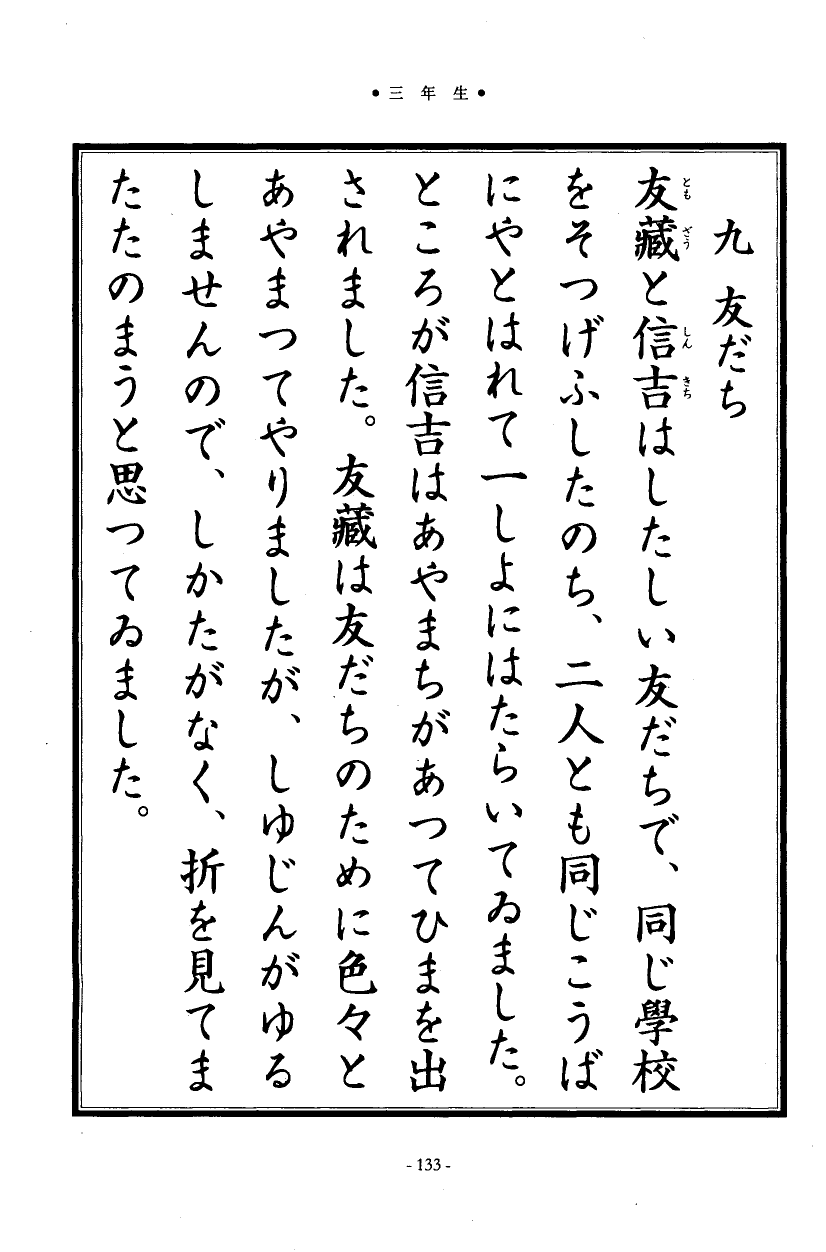 ●三年生●
九 友だち
友藏と信吉はしたしい友だちで、同じ學校
をそつげふしたのち、二人とも同じこうば
にやとはれて一しよにはたらいてゐました。
ところが信吉はあやまちがあつてひまを出
されました。友藏は友だちのために色々と
あやまつてやりましたが、しゆじんがゆる
しませんので、しかたがなく、折を見てま
たたのまうと思つてゐました。
とも ざう しん きち
- 133 -